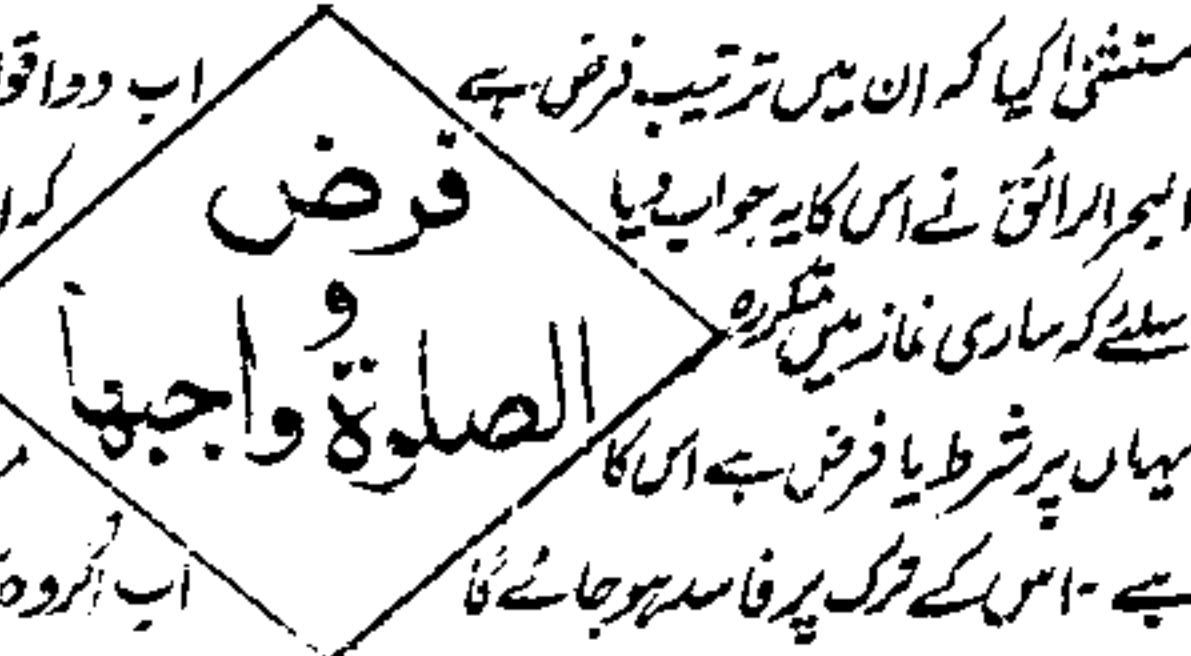 مستثنیٰ کیا کہ ان میں ترتیب فرض ہے
البحر الرائق نے اس کا یہ جواب دیا
سلئے کہ ساری نماز میں متکررہ
یہاں پر شرط یا فرض ہے اس کا
ہے - اس کے ترک پر فاسد ہو جائے گا
فرض
و
الصلوۃ واجبھا
اب دو اقوا
کہ ا
اب اگر وہ